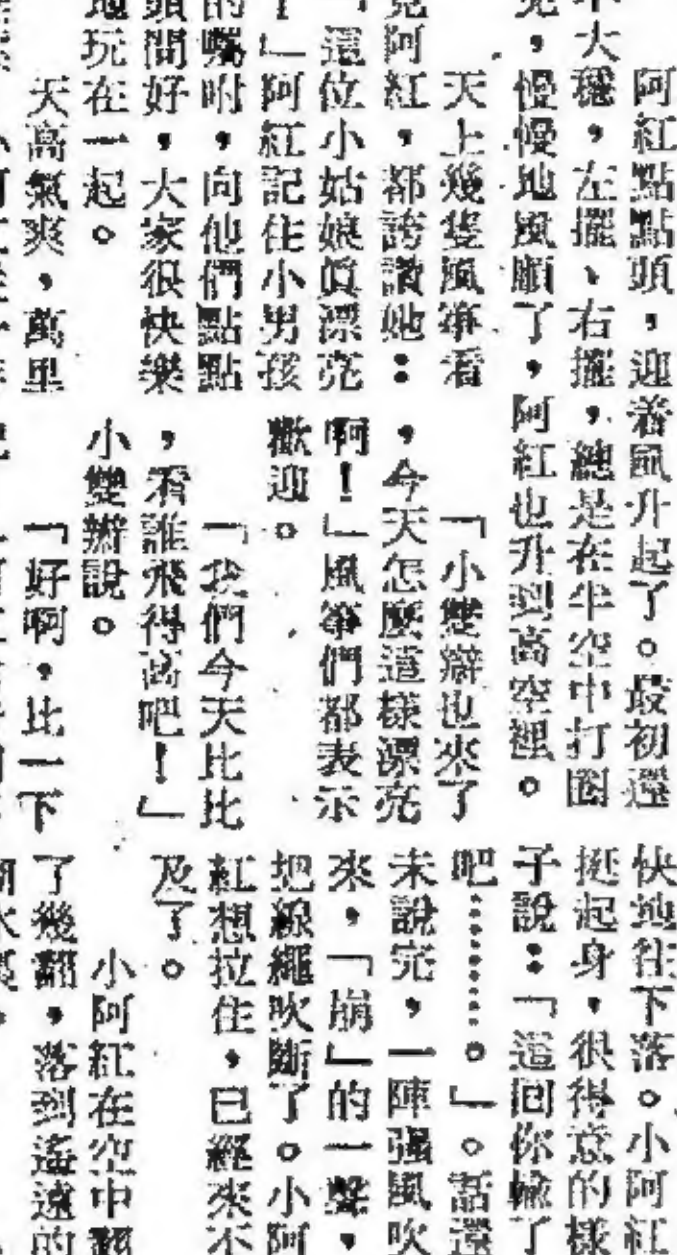 阿紅點點頭，迎着風升起了。最初還
不大穩，左擺、右擺，總是在半空中打圈
兒，慢慢地風順了，阿紅也升到高空裡。
天上幾隻風箏看
見阿紅，都誇讚她：
「這位小姑娘眞漂亮
！」阿紅記住小男孩
的囑咐，向他們點點
頭問好，大家很快樂
地玩在一起。
天高氣爽，萬里
「小雙辮也來了
，今天怎麼這樣漂亮
啊！」風箏們都表示
歡迎。
「我們今天比比
，看誰飛得高吧！」
小雙辮說。
「好啊，比一下
快地往下落。小阿紅
挺起身，很得意的樣
子說：「這回你輸了
吧………。」。話還
未說完，一陣强風吹
來，「崩」的一聲，
把線繩吹斷了。小阿
紅想拉住，已經來不
及了。
小阿紅在空中翻
了幾翻，落到遙遠的